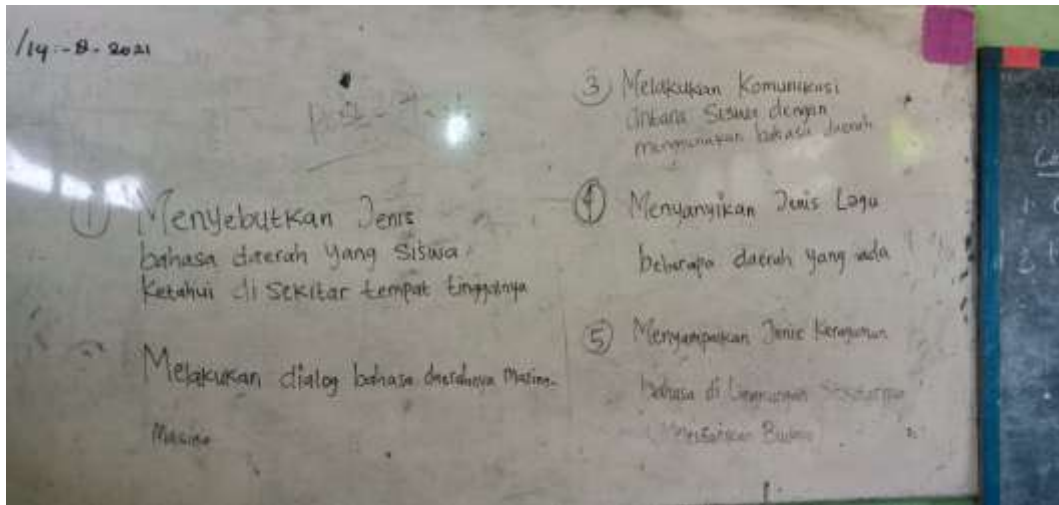 /14-8-2021
① Menyebutkan Jenis
bahasa daerah yang siswa
Ketahui di sekitar tempat tinggalnya
Melakukan dialog bahasa daerahnya Masing-
Masing
③ Melakukan Komunikasi
antara siswa dengan
menggunakan bahasa daerah
④ Menyanyikan Jenis Lagu
beberapa daerah yang ada
⑤ Menyampaikan Jenis Keragaman
bahasa di Lingkungan